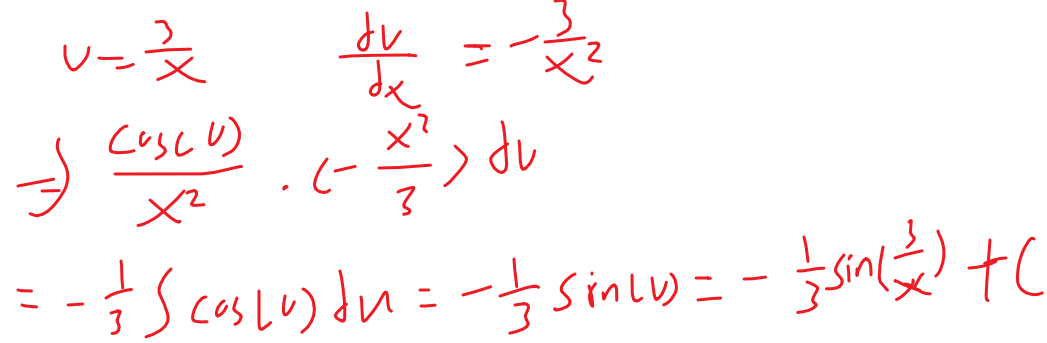 u = 3/x    du/dx = -3/x²
⇒ cos(u)/x² · (-x²/3) du
= -1/3 ∫ cos(u) du = -1/3 sin(u) = -1/3 sin(3/x) + C